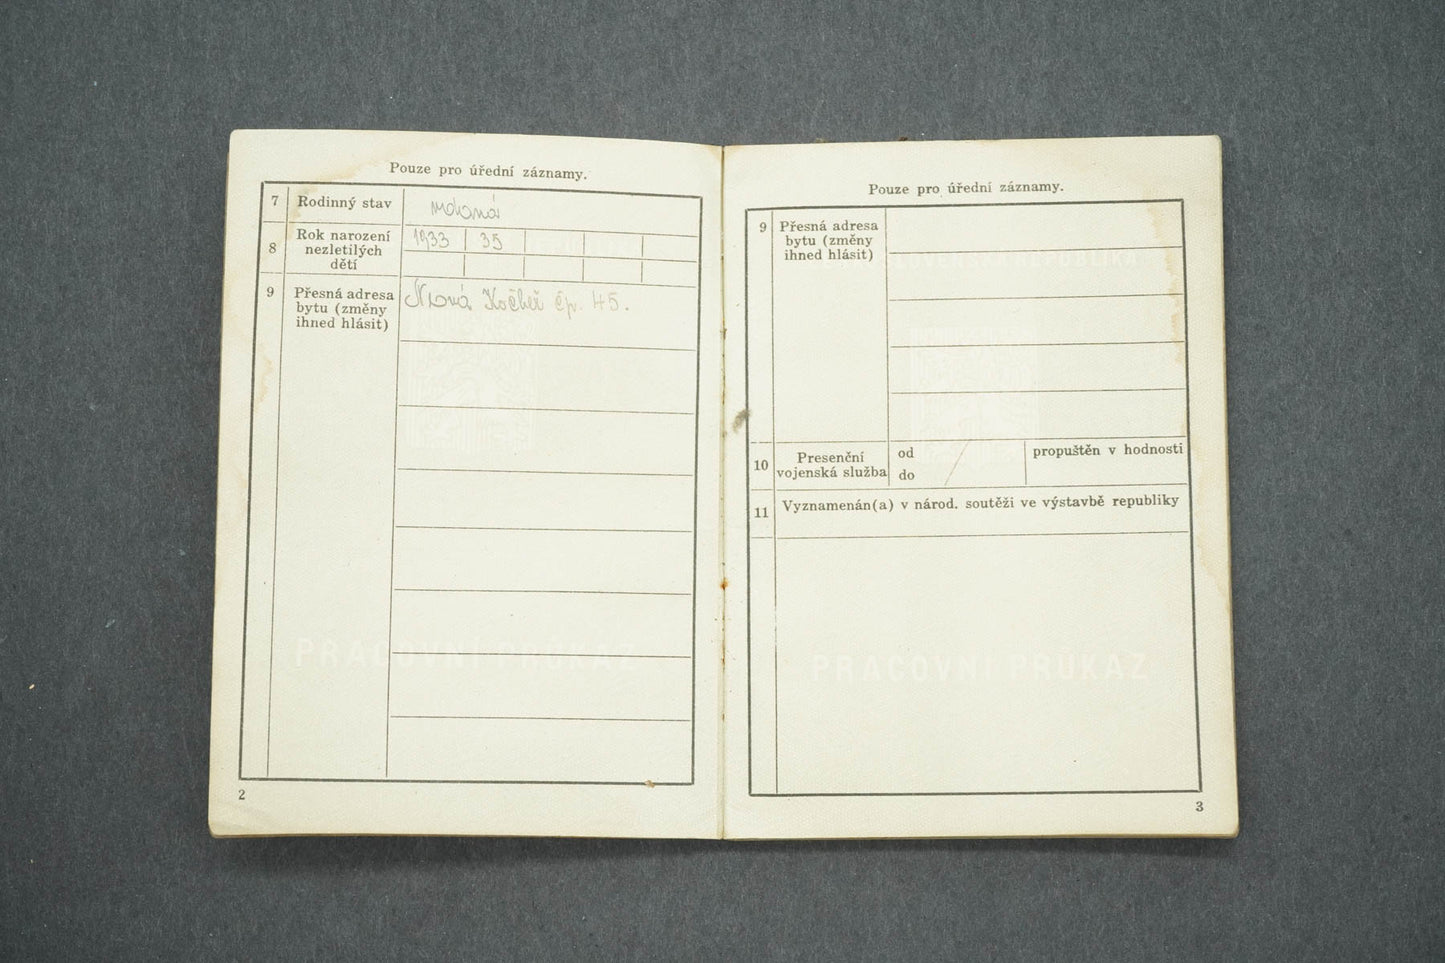 Pouze pro úřední záznamy.
7 Rodinný stav
vdaná
8 Rok narození
nezletilých
dětí
1933 35
9 Přesná adresa
bytu (změny
ihned hlásit)
Nová čp. 45.
PRACOVNÍ PRŮKAZ
2
Pouze pro úřední záznamy.
9 Přesná adresa
bytu (změny
ihned hlásit)
REPUBLIKA
10 Presenční
vojenská služba
od
do
propuštěn v hodnosti
11 Vyznamenán(a) v národ. soutěži ve výstavbě republiky
PRACOVNÍ PRŮKAZ
3